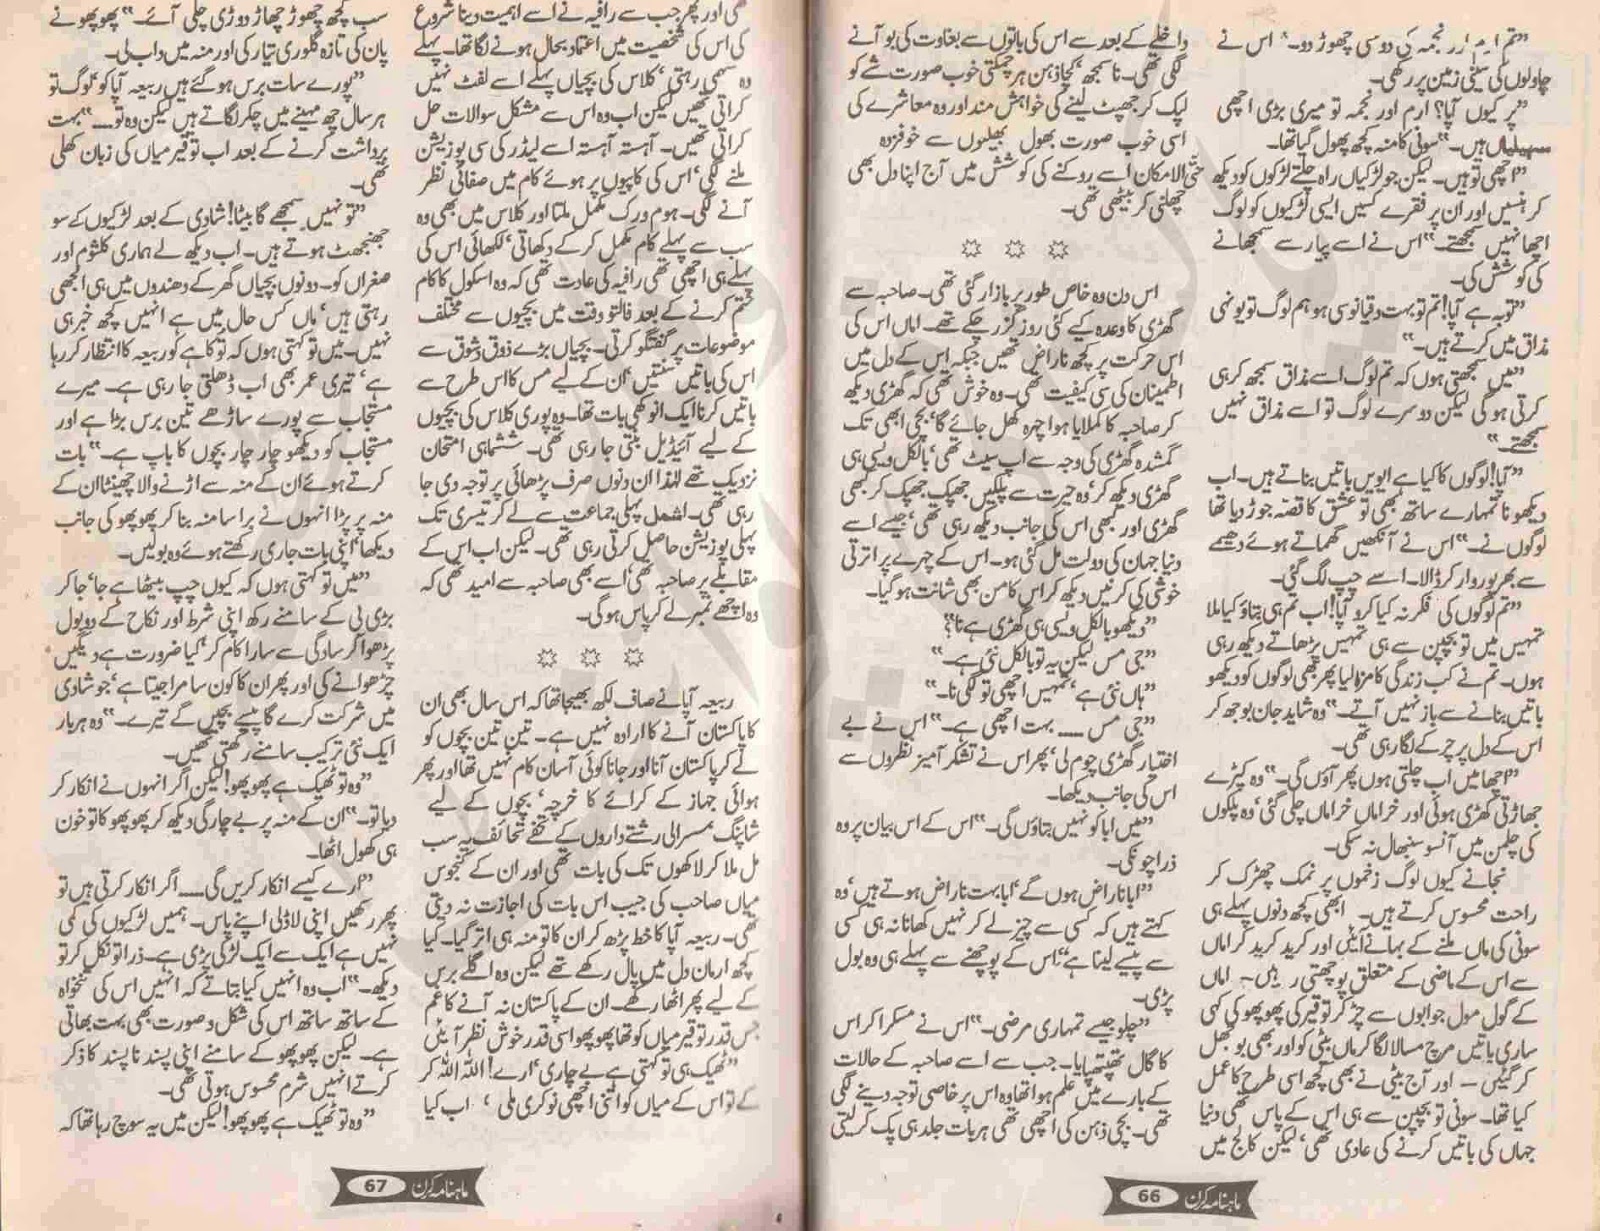 ”تم ارم اور نجمہ کی دوستی چھوڑ دو۔“ اس نے
چاولوں کی سینی زمین پر رکھی۔
”پر کیوں آپا؟ ارم اور نجمہ تو میری بڑی اچھی
سہیلیاں ہیں۔“ سونی کا منہ کچھ پھول گیا تھا۔
”اچھی تو ہیں۔ لیکن جو لڑکیاں راہ چلتے لڑکوں کو دیکھ
کر ہنسیں اور ان پر فقرے کسیں ایسی لڑکیوں کو لوگ
اچھا نہیں سمجھتے۔“ اس نے اسے پیار سے سمجھانے
کی کوشش کی۔
”توبہ ہے آپا! تم تو بہت دقیانوسی ہو ہم لوگ تو یونہی
مذاق میں کرتے ہیں۔“
”میں سمجھتی ہوں کہ تم لوگ اسے مذاق سمجھ کر ہی
کرتی ہو گی لیکن دوسرے لوگ تو اسے مذاق نہیں
سمجھتے۔“
”آپا! لوگوں کا کیا ہے ایویں باتیں بناتے ہیں۔ اب
دیکھو نا تمہارے ساتھ بھی تو عشق کا قصہ جوڑ دیا تھا
لوگوں نے۔“ اس نے آنکھیں گھماتے ہوئے دھیمے
سے بھرپور وار کر ڈالا۔ اسے چپ لگ گئی۔
”تم لوگوں کی فکر نہ کیا کرو آپا! اب تم ہی بتاؤ کیا ملا
تمہیں میں تو بچپن سے ہی تمہیں پڑھاتے دیکھ رہی
ہوں۔ تم نے کب زندگی کا مزا لیا پھر بھی لوگوں کو دیکھو
باتیں بنانے سے باز نہیں آتے۔“ وہ شاید جان بوجھ کر
اس کے دل پر چرکے لگا رہی تھی۔
”اچھا میں اب چلتی ہوں پھر آؤں گی۔“ وہ کپڑے
جھاڑتی کھڑی ہوئی اور خراماں خراماں چلی گئی‘ وہ پلکوں
کی چلمن میں آنسو سنبھال نہ سکی۔
نجانے کیوں لوگ زخموں پر نمک چھڑک کر
راحت محسوس کرتے ہیں۔ ابھی کچھ دنوں پہلے ہی
سونی کی ماں ملنے کے بہانے آئیں اور کرید کرید کر اماں
سے اس کے ماضی کے متعلق پوچھتی رہیں۔ اماں
کے گول مول جوابوں سے چڑ کر توقیر کی پھوپھو کی کہی
ساری باتیں مرچ مسالا لگا کر ماں بیٹی کو اور بھی بوجھل
کر گئیں۔ اور آج بیٹی نے بھی کچھ اسی طرح کا عمل
کیا تھا۔ سونی تو بچپن سے ہی اس کے پاس بیٹھی دنیا
جہاں کی باتیں کرنے کی عادی تھی‘ لیکن کالج میں
داخلے کے بعد سے اس کی باتوں سے بغاوت کی بو آنے
لگی تھی۔ نا سمجھ‘ کچا ذہن ہر چمکتی خوب صورت شے کو
لپک کر جھپٹ لینے کی خواہش مند اور وہ معاشرے کی
اسی خوب صورت بھول بھلیوں سے خوفزدہ
حتی الامکان اسے روکنے کی کوشش میں آج اپنا دل بھی
چھلنی کر بیٹھی تھی۔
☼ ☼ ☼
اس دن وہ خاص طور پر بازار گئی تھی۔ صاحبہ سے
گھڑی کا وعدہ کیے کئی روز گزر چکے تھے۔ اماں اس کی
اس حرکت پر کچھ ناراض تھیں جبکہ اس کے دل میں
اطمینان کی سی کیفیت تھی۔ وہ خوش تھی کہ گھڑی دیکھ
کر صاحبہ کا کملایا ہوا چہرہ کھل جائے گا‘ بچی ابھی تک
گمشدہ گھڑی کی وجہ سے اپ سیٹ تھی‘ بالکل ویسی ہی
گھڑی دیکھ کر‘ وہ حیرت سے پلکیں جھپک جھپک کر کبھی
گھڑی اور کبھی اس کی جانب دیکھ رہی تھی‘ جیسے اسے
دنیا جہان کی دولت مل گئی ہو۔ اس کے چہرے پر اترتی
خوشی کی کرنیں دیکھ کر اس کا من بھی شانت ہو گیا۔
”دیکھو بالکل ویسی ہی گھڑی ہے نا؟“
”جی مس لیکن یہ تو بالکل نئی ہے۔“
”ہاں نئی ہے‘ تمہیں اچھی تو لگی نا۔“
”جی مس ۔۔۔۔ بہت اچھی ہے۔“ اس نے بے
اختیار گھڑی چوم لی‘ پھر اس نے تشکر آمیز نظروں سے
اس کی جانب دیکھا۔
”میں ابا کو نہیں بتاؤں گی۔“ اس کے اس بیان پر وہ
ذرا چونکی۔
”ابا ناراض ہوں گے‘ ابا بہت ناراض ہوتے ہیں‘ وہ
کہتے ہیں کہ کسی سے چیز لے کر نہیں کھانا نہ ہی کسی
سے پیسے لینا ہے“ اس کے پوچھنے سے پہلے ہی وہ بول
پڑی۔
”چلو جیسے تمہاری مرضی۔“ اس نے مسکرا کر اس
کا گال تھپتھپایا۔ جب سے اسے صاحبہ کے حالات
کے بارے میں علم ہوا تھا وہ اس پر خاصی توجہ دینے لگی
تھی۔ بچی ذہن کی اچھی تھی ہر بات جلد ہی پک کر لیتی
ماہنامہ کرن 66
تھی اور پھر جب سے رافیہ نے اسے اہمیت دینا شروع
کی اس کی شخصیت میں اعتماد بحال ہونے لگا تھا۔ پہلے
وہ سہمی رہتی‘ کلاس کی بچیاں پہلے اسے لفٹ نہیں
کراتی تھیں لیکن اب وہ اس سے مشکل سوالات حل
کراتی تھیں۔ آہستہ آہستہ اسے لیڈر کی سی پوزیشن
ملنے لگی‘ اس کی کاپیوں پر ہوئے کام میں صفائی نظر
آنے لگی۔ ہوم ورک مکمل ملتا اور کلاس میں بھی وہ
سب سے پہلے کام مکمل کر کے دکھاتی‘ لکھائی اس کی
پہلے ہی اچھی تھی رافیہ کی عادت تھی کہ وہ اسکول کا کام
ختم کرنے کے بعد فالتو وقت میں بچیوں سے مختلف
موضوعات پر گفتگو کرتی۔ بچیاں بڑے ذوق و شوق سے
اس کی باتیں سنتیں‘ ان کے لیے مس کا اس طرح سے
باتیں کرنا ایک انوکھی بات تھا۔ وہ پوری کلاس کی بچیوں
کے لیے آئیڈیل بنتی جا رہی تھی۔ ششماہی امتحان
نزدیک تھے لہٰذا ان دنوں صرف پڑھائی پر توجہ دی جا
رہی تھی۔ اشمل پہلی جماعت سے لے کر تیسری تک
پہلی پوزیشن حاصل کرتی رہی تھی۔ لیکن اب اس کے
مقابلے پر صاحبہ تھی‘ اسے بھی صاحبہ سے امید تھی کہ
وہ اچھے نمبر لے کر پاس ہو گی۔
☼ ☼ ☼
ربیعہ آپا نے صاف لکھ بھیجا تھا کہ اس سال بھی ان
کا پاکستان آنے کا ارادہ نہیں ہے۔ تین تین بچوں کو
لے کر پاکستان آنا اور جانا کوئی آسان کام نہیں تھا اور پھر
ہوائی جہاز کے کرائے کا خرچہ‘ بچوں کے لیے
شاپنگ‘ سسرالی رشتے داروں کے تحفے تحائف یہ سب
مل ملا کر لاکھوں تک کی بات تھی اور ان کے کنجوس
میاں صاحب کی جیب اس بات کی اجازت نہ دیتی
تھی۔ ربیعہ آپا کا خط پڑھ کر ان کا تو منہ ہی اتر گیا۔ کیا
کچھ ارمان دل میں پال رکھے تھے لیکن وہ اگلے برس
کے لیے پھر اٹھا رکھے۔ ان کے پاکستان نہ آنے کا غم
جس قدر توقیر میاں کو تھا پھوپھو اسی قدر خوش نظر آئیں
”ٹھیک ہی تو کہتی ہے بے چاری‘ ارے! اللہ اللہ کر
کے تو اس کے میاں کو اتنی اچھی نوکری ملی‘ اب کیا
سب کچھ چھوڑ چھاڑ دوڑی چلی آئے۔“ پھوپھو نے
پان کی تازہ گلوری تیار کی اور منہ میں داب لی۔
”پورے سات برس ہو گئے ہیں ربیعہ آپا کو‘ لوگ تو
ہر سال چھ مہینے میں چکر لگاتے ہیں لیکن وہ تو ۔۔۔۔“ بہت
برداشت کرنے کے بعد اب توقیر میاں کی زبان کھلی
تھی۔
”تو نہیں سمجھے گا بیٹا! شادی کے بعد لڑکیوں کے سو
جھنجھٹ ہوتے ہیں۔ اب دیکھ لے ہماری کلثوم اور
صغراں کو۔ دونوں بچیاں گھر کے دھندوں میں ہی الجھی
رہتی ہیں‘ ماں کس حال میں ہے انہیں کچھ خبر ہی
نہیں۔ میں تو کہتی ہوں کہ تو کاہے کو ربیعہ کا انتظار کر رہا
ہے‘ تیری عمر بھی اب ڈھلتی جا رہی ہے۔ میرے
مستجاب سے پورے ساڑھے تین برس بڑا ہے اور
مستجاب کو دیکھو چار چار بچوں کا باپ ہے۔“ بات
کرتے ہوئے ان کے منہ سے اڑنے والا چھینٹا ان کے
منہ پر پڑا انہوں نے برا سا منہ بنا کر پھوپھو کی جانب
دیکھا‘ اپنی بات جاری رکھتے ہوئے وہ بولیں۔
”میں تو کہتی ہوں کہ کیوں چپ بیٹھا ہے جا‘ جا کر
بڑی بی کے سامنے رکھ اپنی شرط اور نکاح کے دو بول
پڑھوا کر سادگی سے سارا کام کر‘ کیا ضرورت ہے دیگیں
چڑھوانے کی اور پھر ان کا کون سا مرا جیتا ہے‘ جو شادی
میں شرکت کرے گا پیسے بچیں گے تیرے۔“ وہ ہر بار
ایک نئی ترکیب سامنے رکھتی تھیں۔
”وہ تو ٹھیک ہے پھوپھو! لیکن اگر انہوں نے انکار کر
دیا تو۔“ ان کے منہ پر بے چارگی دیکھ کر پھوپھو کا تو خون
ہی کھول اٹھا۔
”ارے کیسے انکار کریں گی ۔۔۔۔ اگر انکار کرتی ہیں تو
پھر رکھیں اپنی لاڈلی اپنے پاس۔ ہمیں لڑکیوں کی کمی
نہیں ہے ایک سے ایک لڑکی پڑی ہے۔ ذرا تو نکل کر تو
دیکھ۔“ اب وہ انہیں کیا بتاتے کہ انہیں اس کی تنخواہ
کے ساتھ ساتھ اس کی شکل و صورت بھی بہت بھاتی
ہے۔ لیکن پھوپھو کے سامنے اپنی پسند نا پسند کا ذکر
کرتے انہیں شرم محسوس ہوتی تھی۔
”وہ تو ٹھیک ہے پھوپھو! لیکن میں یہ سوچ رہا تھا کہ
ماہنامہ کرن 67